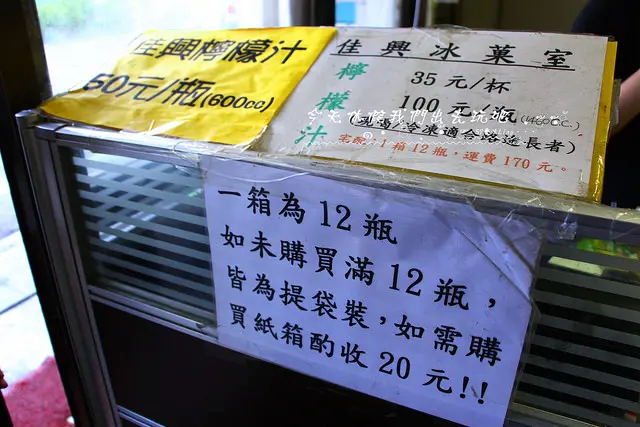 佳興檸檬汁
50元/瓶(600cc)
佳興冰菓室
檸檬汁
35元/杯
100元/瓶(1460c.c.)
冷凍適合路途長者)
宅配:1箱12瓶,運費170元。
今天你帶我們出去玩
一箱為12瓶
如未購買滿12瓶,
皆為提袋裝,如需購
買紙箱酌收20元!!